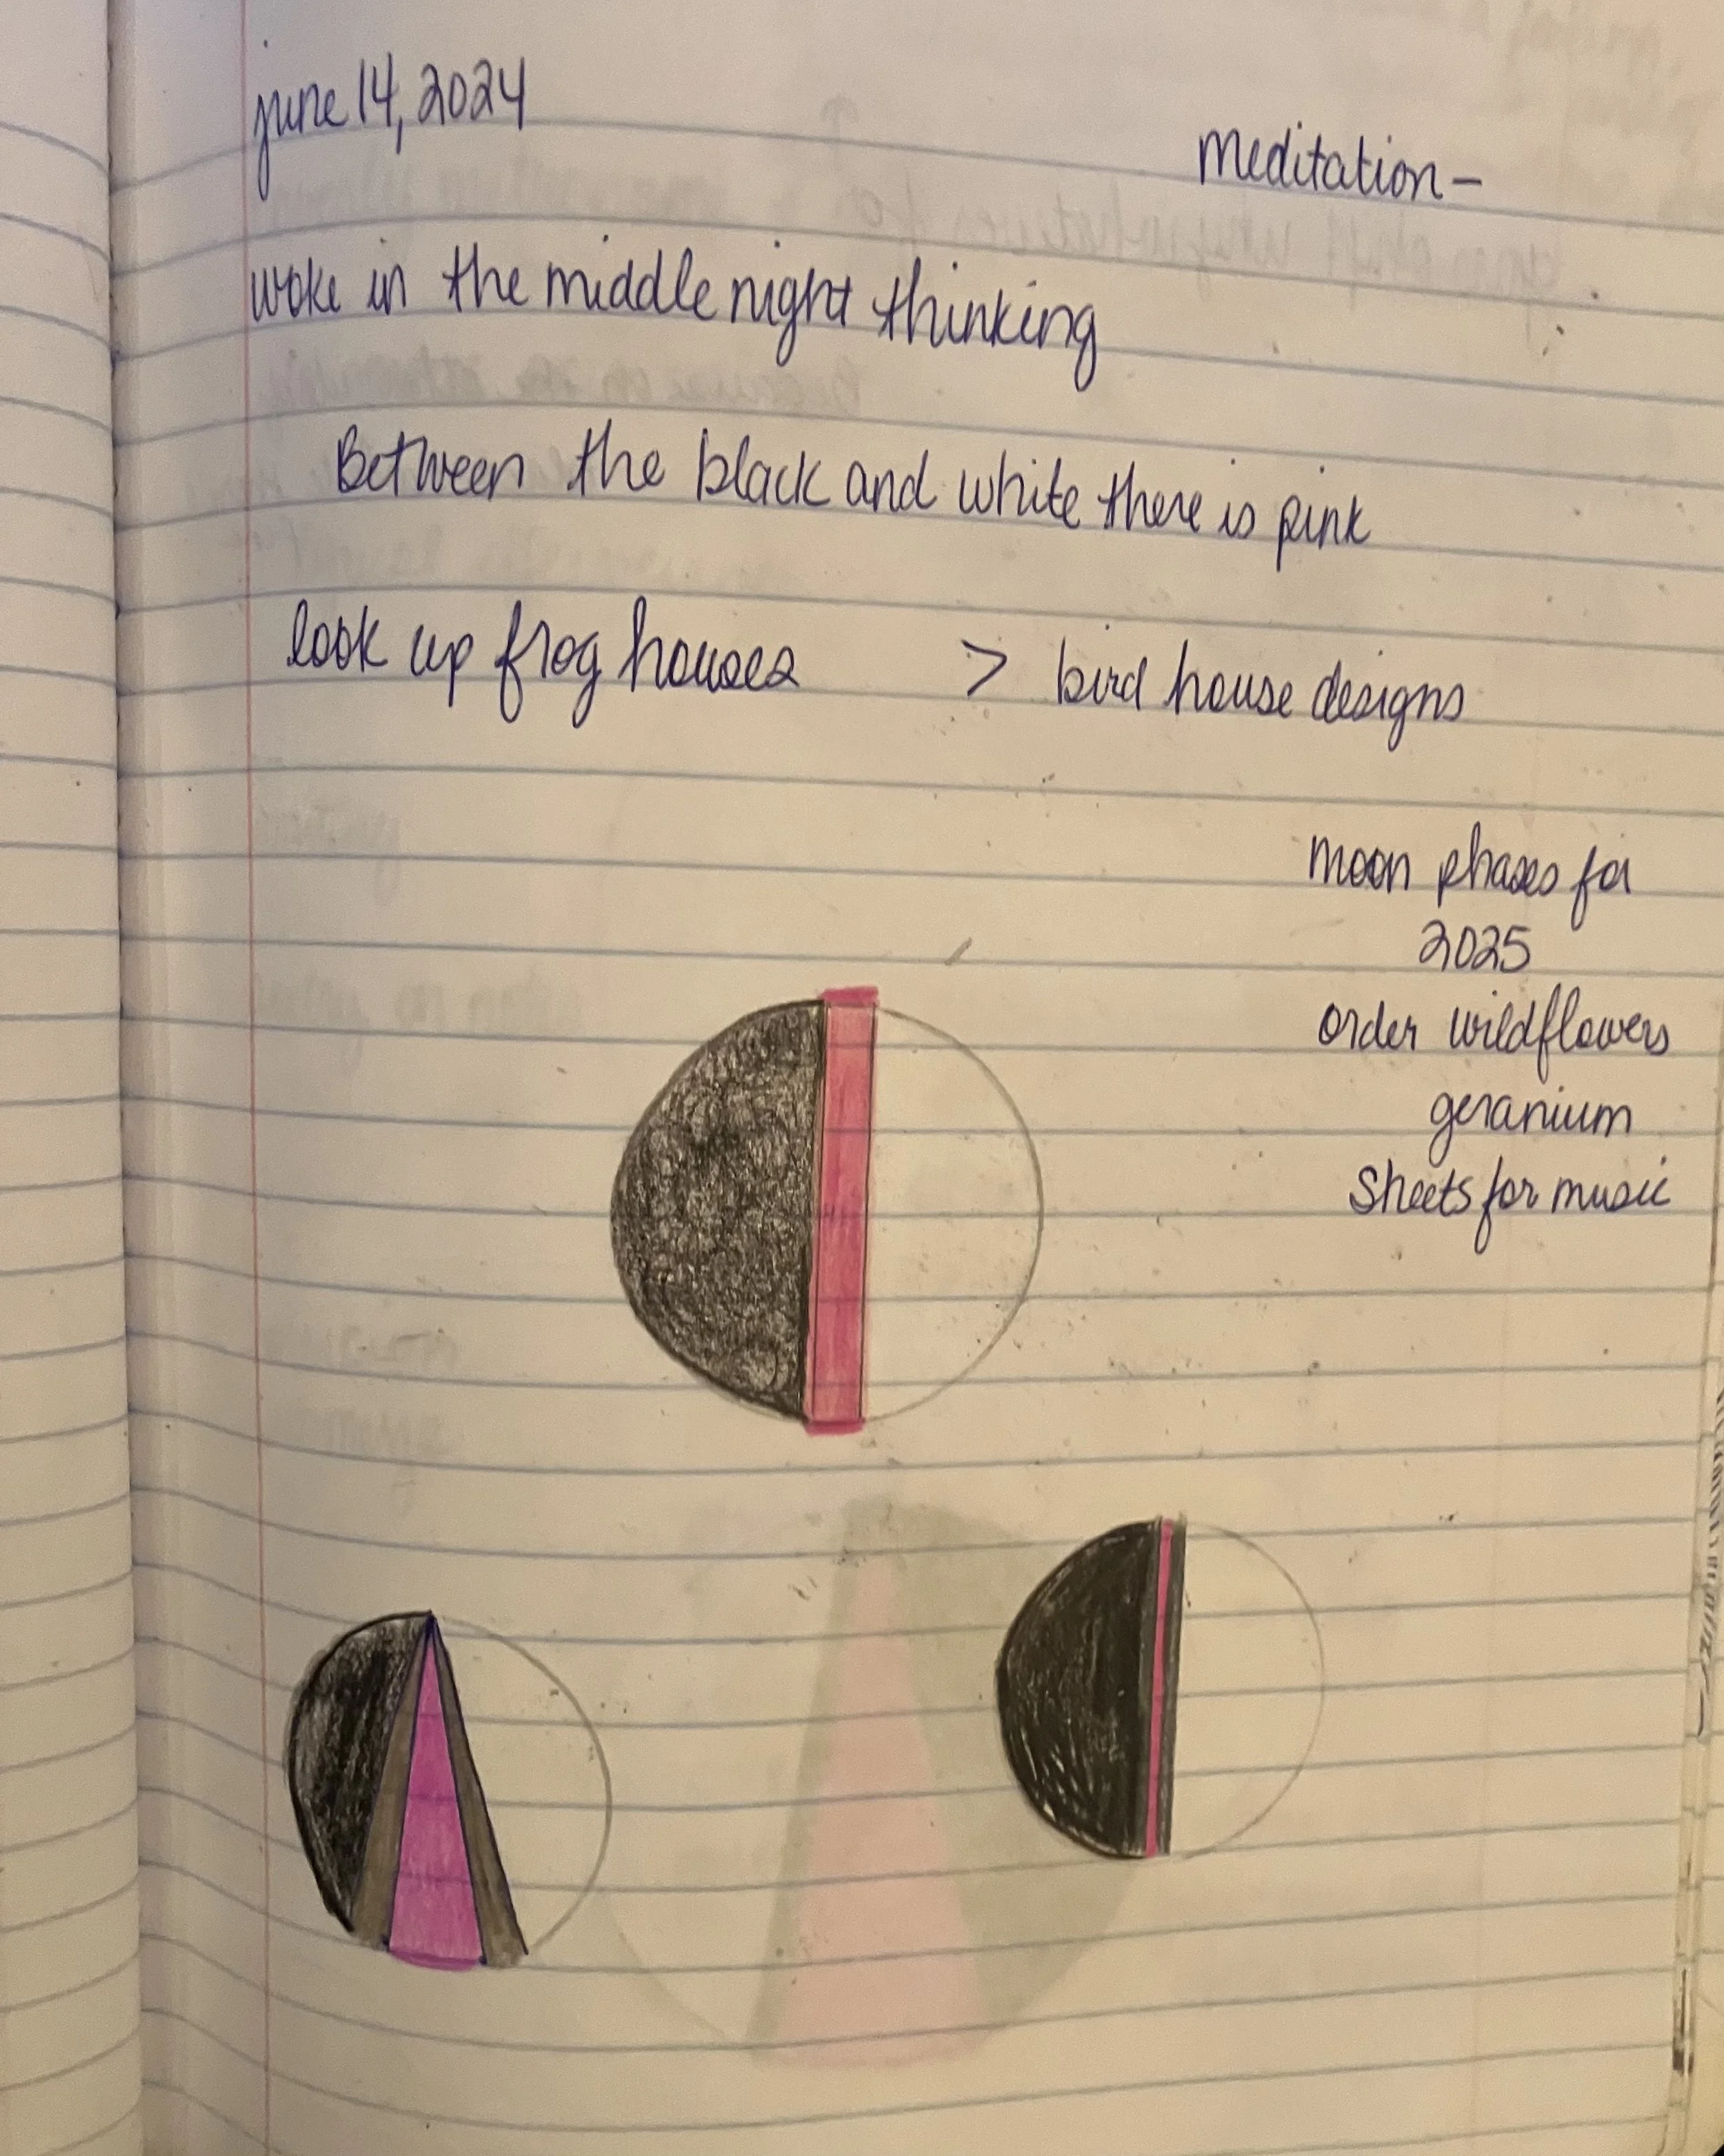 june 14, 2024
meditation-
woke in the middle night thinking
Between the black and white there is pink
look up frog houses > bird house designs
moon phases for
2025
order wildflowers
geranium
Sheets for music